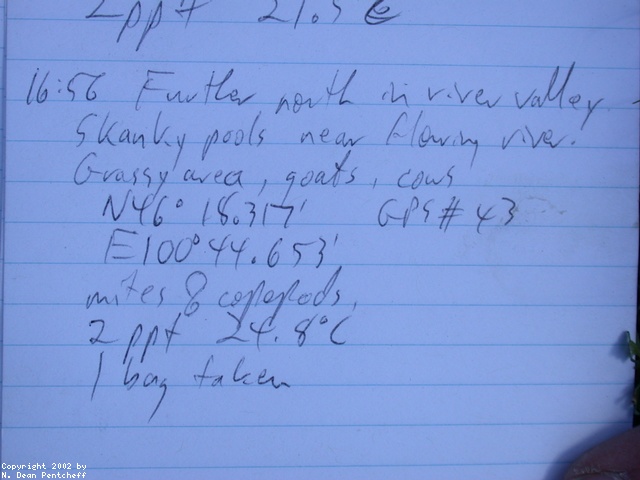 2 ppt 21.5 C
16:56 Further north in river valley.
Skanky pools near flowing river.
Grassy area, goats, cows
N46° 18.317' GPS # 43
E100° 44.653'
mites & copepods,
2 ppt 24.8°C
1 bag taken
Copyright 2002 by
N. Dean Pentcheff